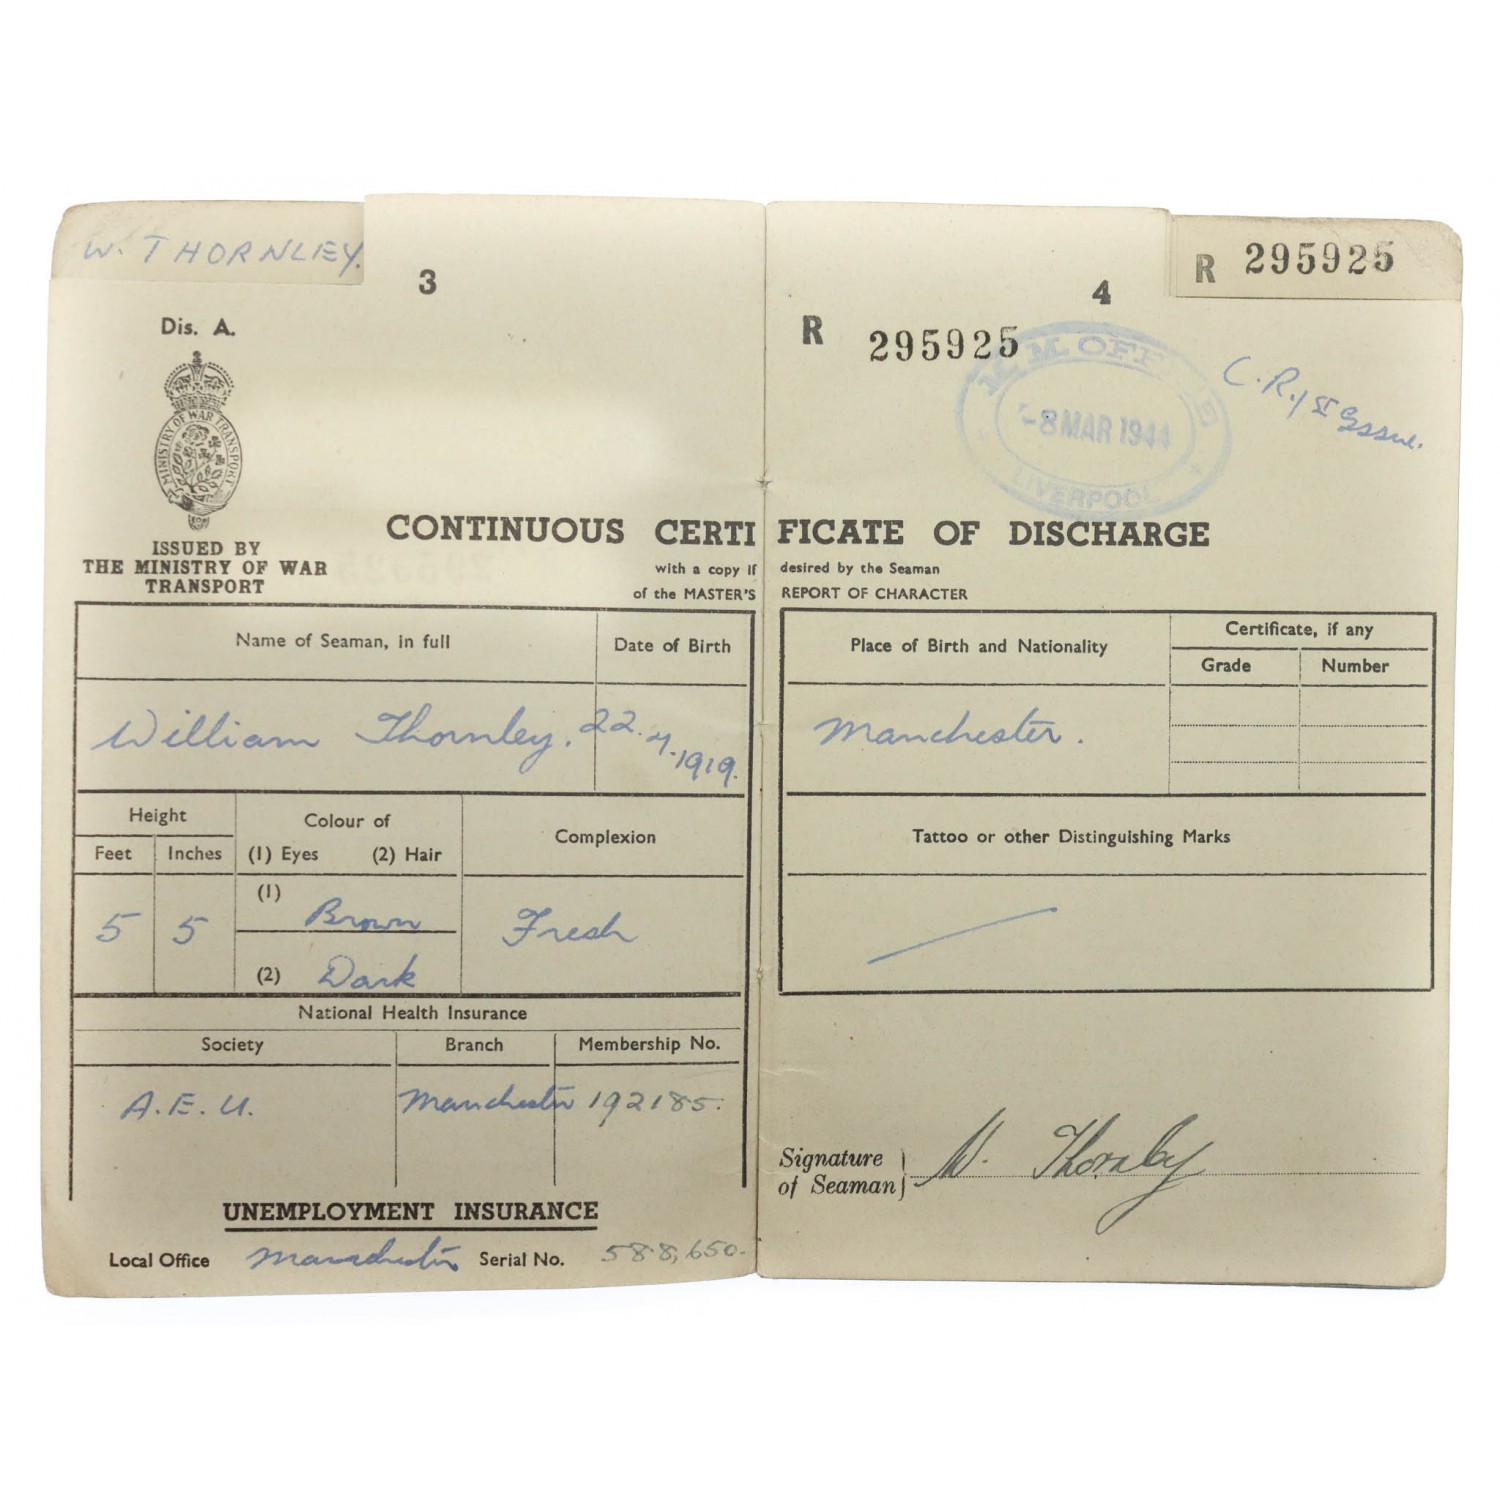 W. THORNLEY.
3
Dis. A.
MINISTRY OF WAR TRANSPORT
ISSUED BY
THE MINISTRY OF WAR
TRANSPORT
R 295925
4
R 295925
M. M. OFFICE
-8 MAR 1944
LIVERPOOL
C.R. 1st Issue.
CONTINUOUS CERTIFICATE OF DISCHARGE
with a copy if desired by the Seaman
of the MASTER'S REPORT OF CHARACTER
Name of Seaman, in full Date of Birth
William Thornley. 22.4.1919.
Height Colour of Complexion
Feet Inches (1) Eyes (2) Hair
5 5 (1) Brown Fresh
(2) Dark
National Health Insurance
Society Branch Membership No.
A.E.U. Manchester 192185.
UNEMPLOYMENT INSURANCE
Local Office Manchester Serial No. 588,650.
Place of Birth and Nationality Certificate, if any
Grade Number
Manchester.
Tattoo or other Distinguishing Marks
Signature
of Seaman W. Thornley